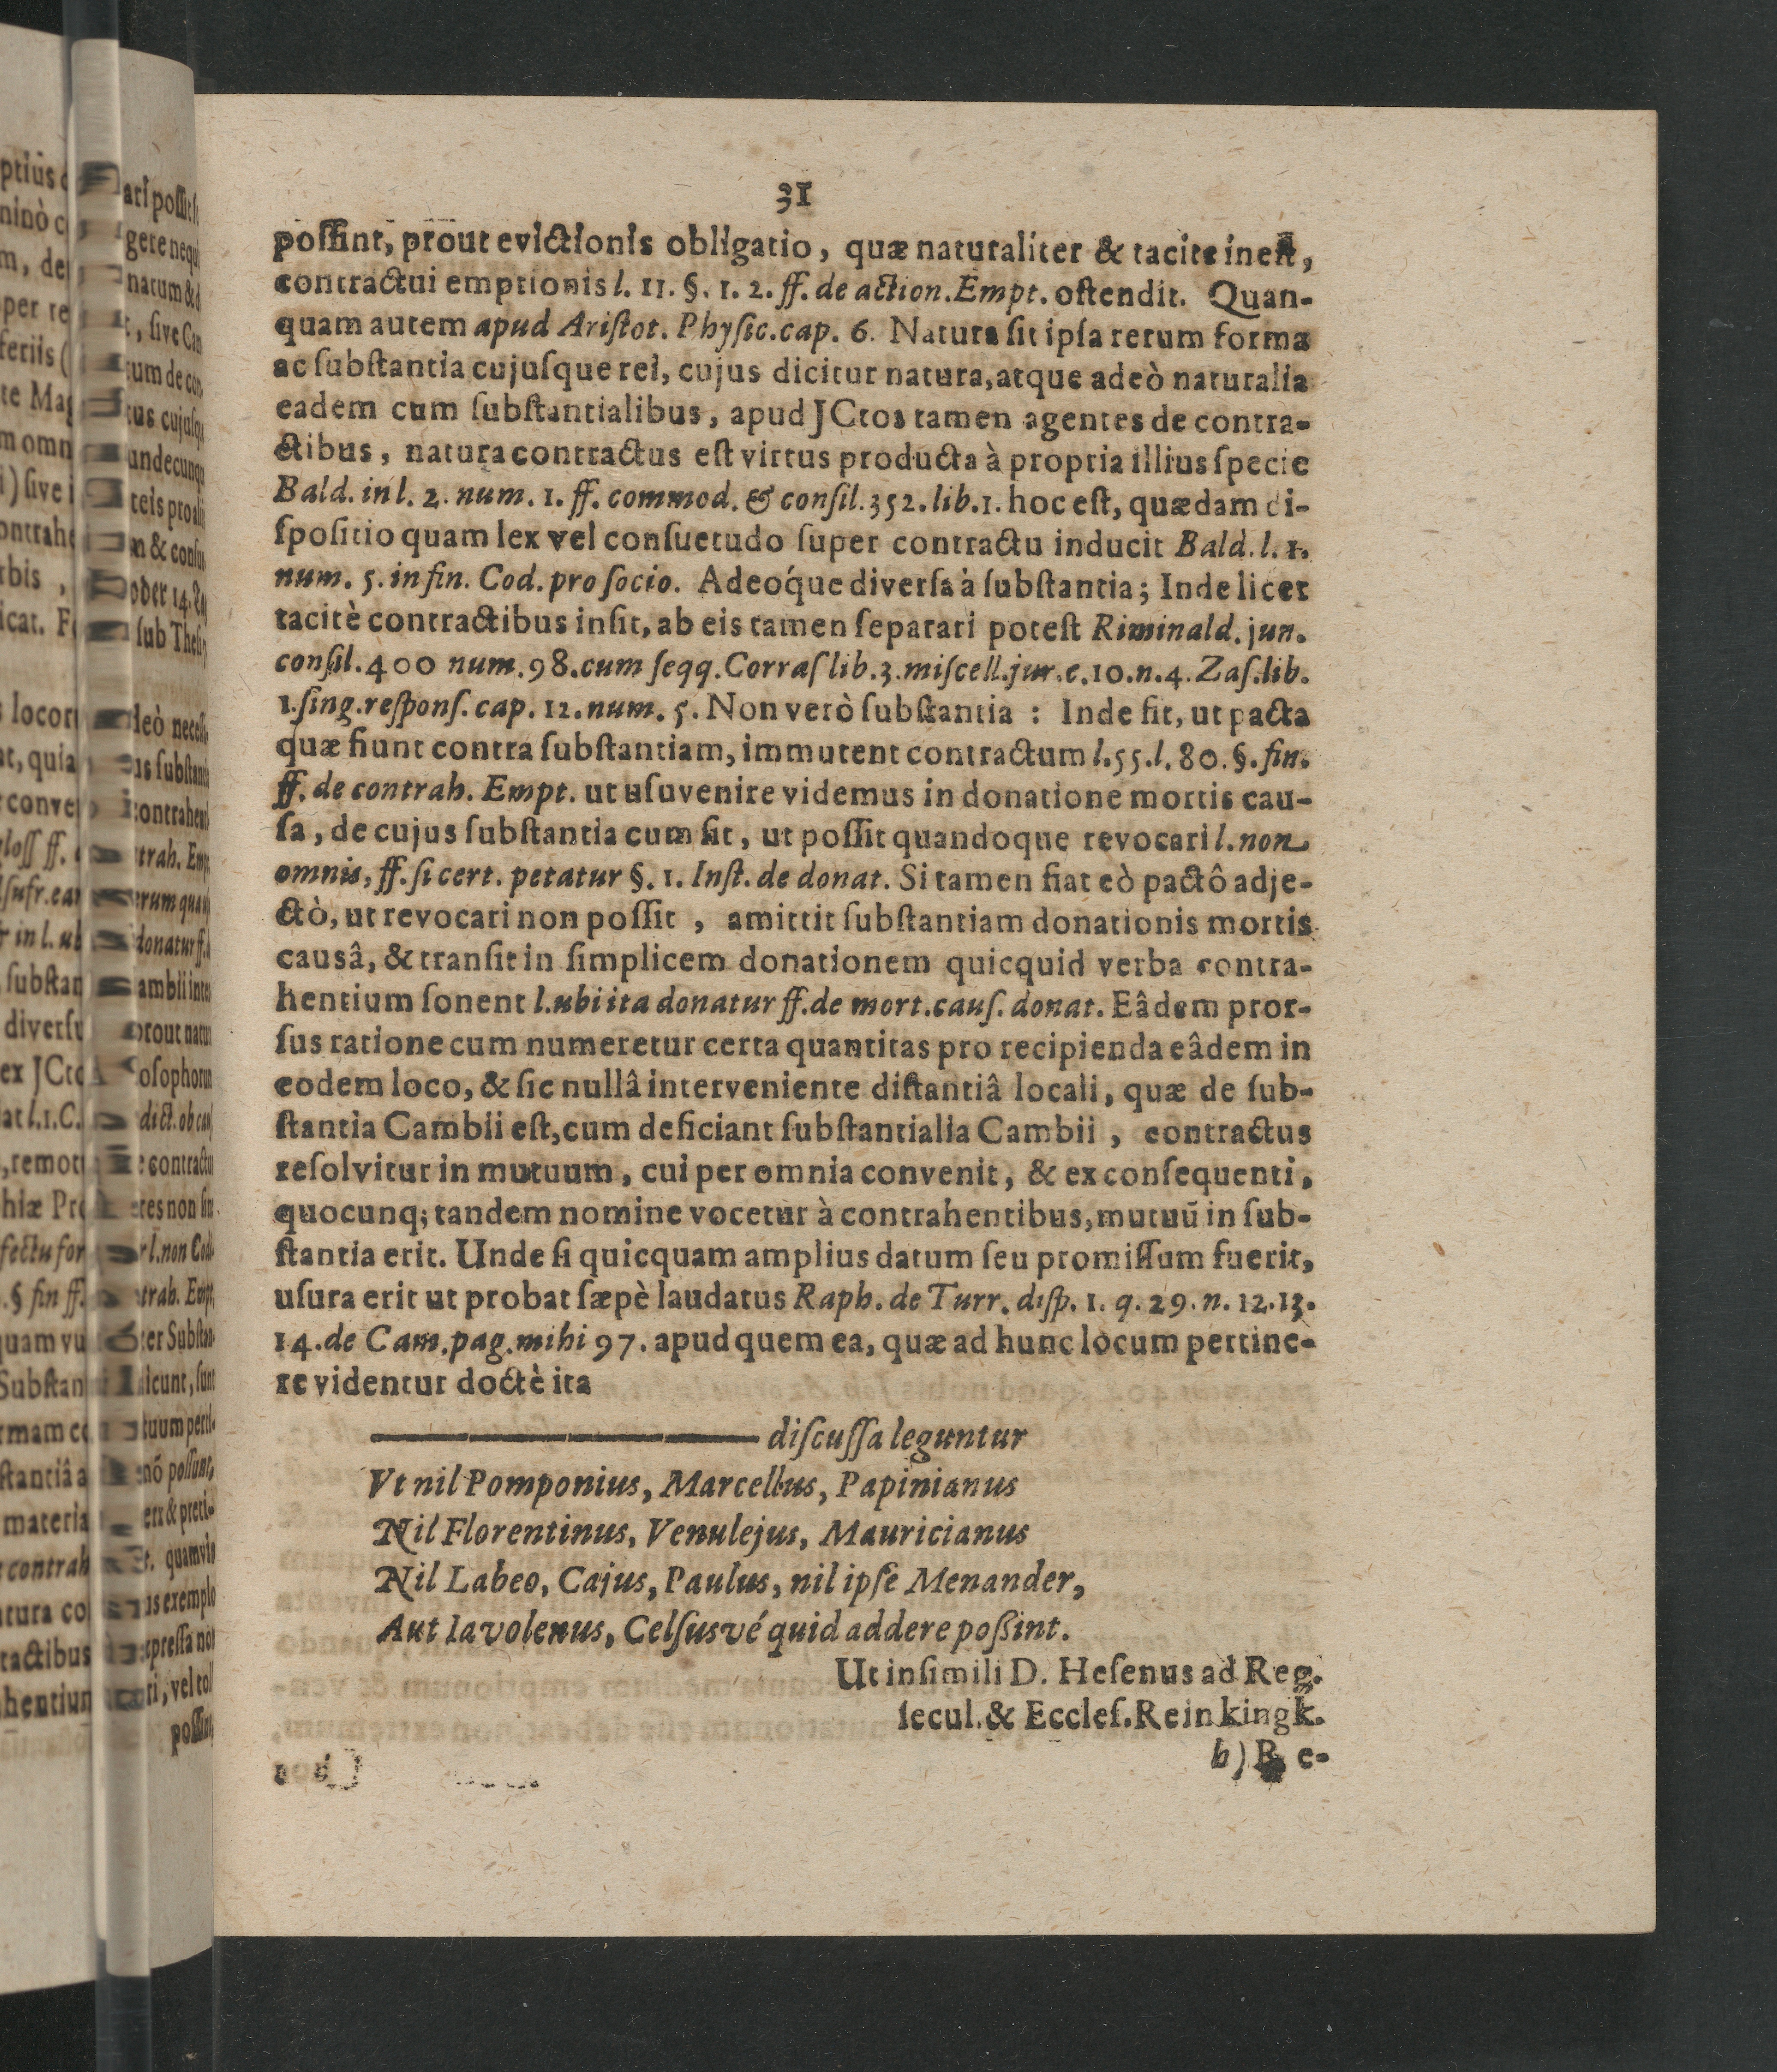 31
poſſint, prout evictionis obligatio, quæ naturaliter & tacite ineſt,
contractui emptionis l. 11. §. 1. 2. ff. de action. Empt. oſtendit. Quan-
quam autem apud Ariſtot. Phyſic. cap. 6. Natura ſit ipſa rerum forma
ac ſubſtantia cujuſque rei, cujus dicitur natura, atque adeò naturalia
eadem cum ſubſtantialibus, apud JCtos tamen agentes de contra-
ctibus, natura contractus eſt virtus producta à propria illius ſpecie
Bald. in l. 2. num. 1. ff. commod. & conſil. 352. lib. 1. hoc eſt, quædam di-
ſpoſitio quam lex vel conſuetudo ſuper contractu inducit Bald. l. 1.
num. 5. in fin. Cod. pro ſocio. Adeóque diverſa à ſubſtantia; Inde licet
tacitè contractibus inſit, ab eis tamen ſeparari poteſt Riminald. jun.
conſil. 400 num. 98. cum ſeqq. Corraſ lib. 3. miſcell. jur. c. 10. n. 4. Zaſ. lib.
1. ſing. reſponſ. cap. 12. num. 5. Non verò ſubſtantia : Inde fit, ut pacta
quæ fiunt contra ſubſtantiam, immutent contractum l. 55. l. 80. §. fin.
ff. de contrah. Empt. ut uſuvenire videmus in donatione mortis cau-
ſa, de cujus ſubſtantia cum ſit, ut poſſit quandoque revocari l. non
omnis, ff. ſi cert. petatur §. 1. Inſt. de donat. Si tamen fiat eò pactô adje-
ctò, ut revocari non poſſit , amittit ſubſtantiam donationis mortis
causâ, & tranſit in ſimplicem donationem quicquid verba contra-
hentium ſonent l. ubi ita donatur ff. de mort. cauſ. donat. Eâdem pror-
ſus ratione cum numeretur certa quantitas pro recipienda eâdem in
eodem loco, & ſic nullâ interveniente diſtantiâ locali, quæ de ſub-
ſtantia Cambii eſt, cum deficiant ſubſtantialia Cambii , contractus
reſolvitur in mutuum, cui per omnia convenit, & ex conſequenti,
quocunq; tandem nomine vocetur à contrahentibus, mutuū in ſub-
ſtantia erit. Unde ſi quicquam amplius datum ſeu promiſſum fuerit,
uſura erit ut probat ſæpè laudatus Raph. de Turr. diſp. 1. q. 29. n. 12. 13.
14. de Cam. pag. mihi 97. apud quem ea, quæ ad hunc locum pertine-
re videntur doctè ita
diſcuſſa leguntur
Vt nil Pomponius, Marcellus, Papinianus
Nil Florentinus, Venulejus, Mauricianus
Nil Labeo, Cajus, Paulus, nil ipſe Menander,
Aut Iavolenus, Celſusvé quid addere poßint.
Ut in ſimili D. Heſenus ad Reg.
ſecul. & Eccleſ. Reinkingk.
b) B e-